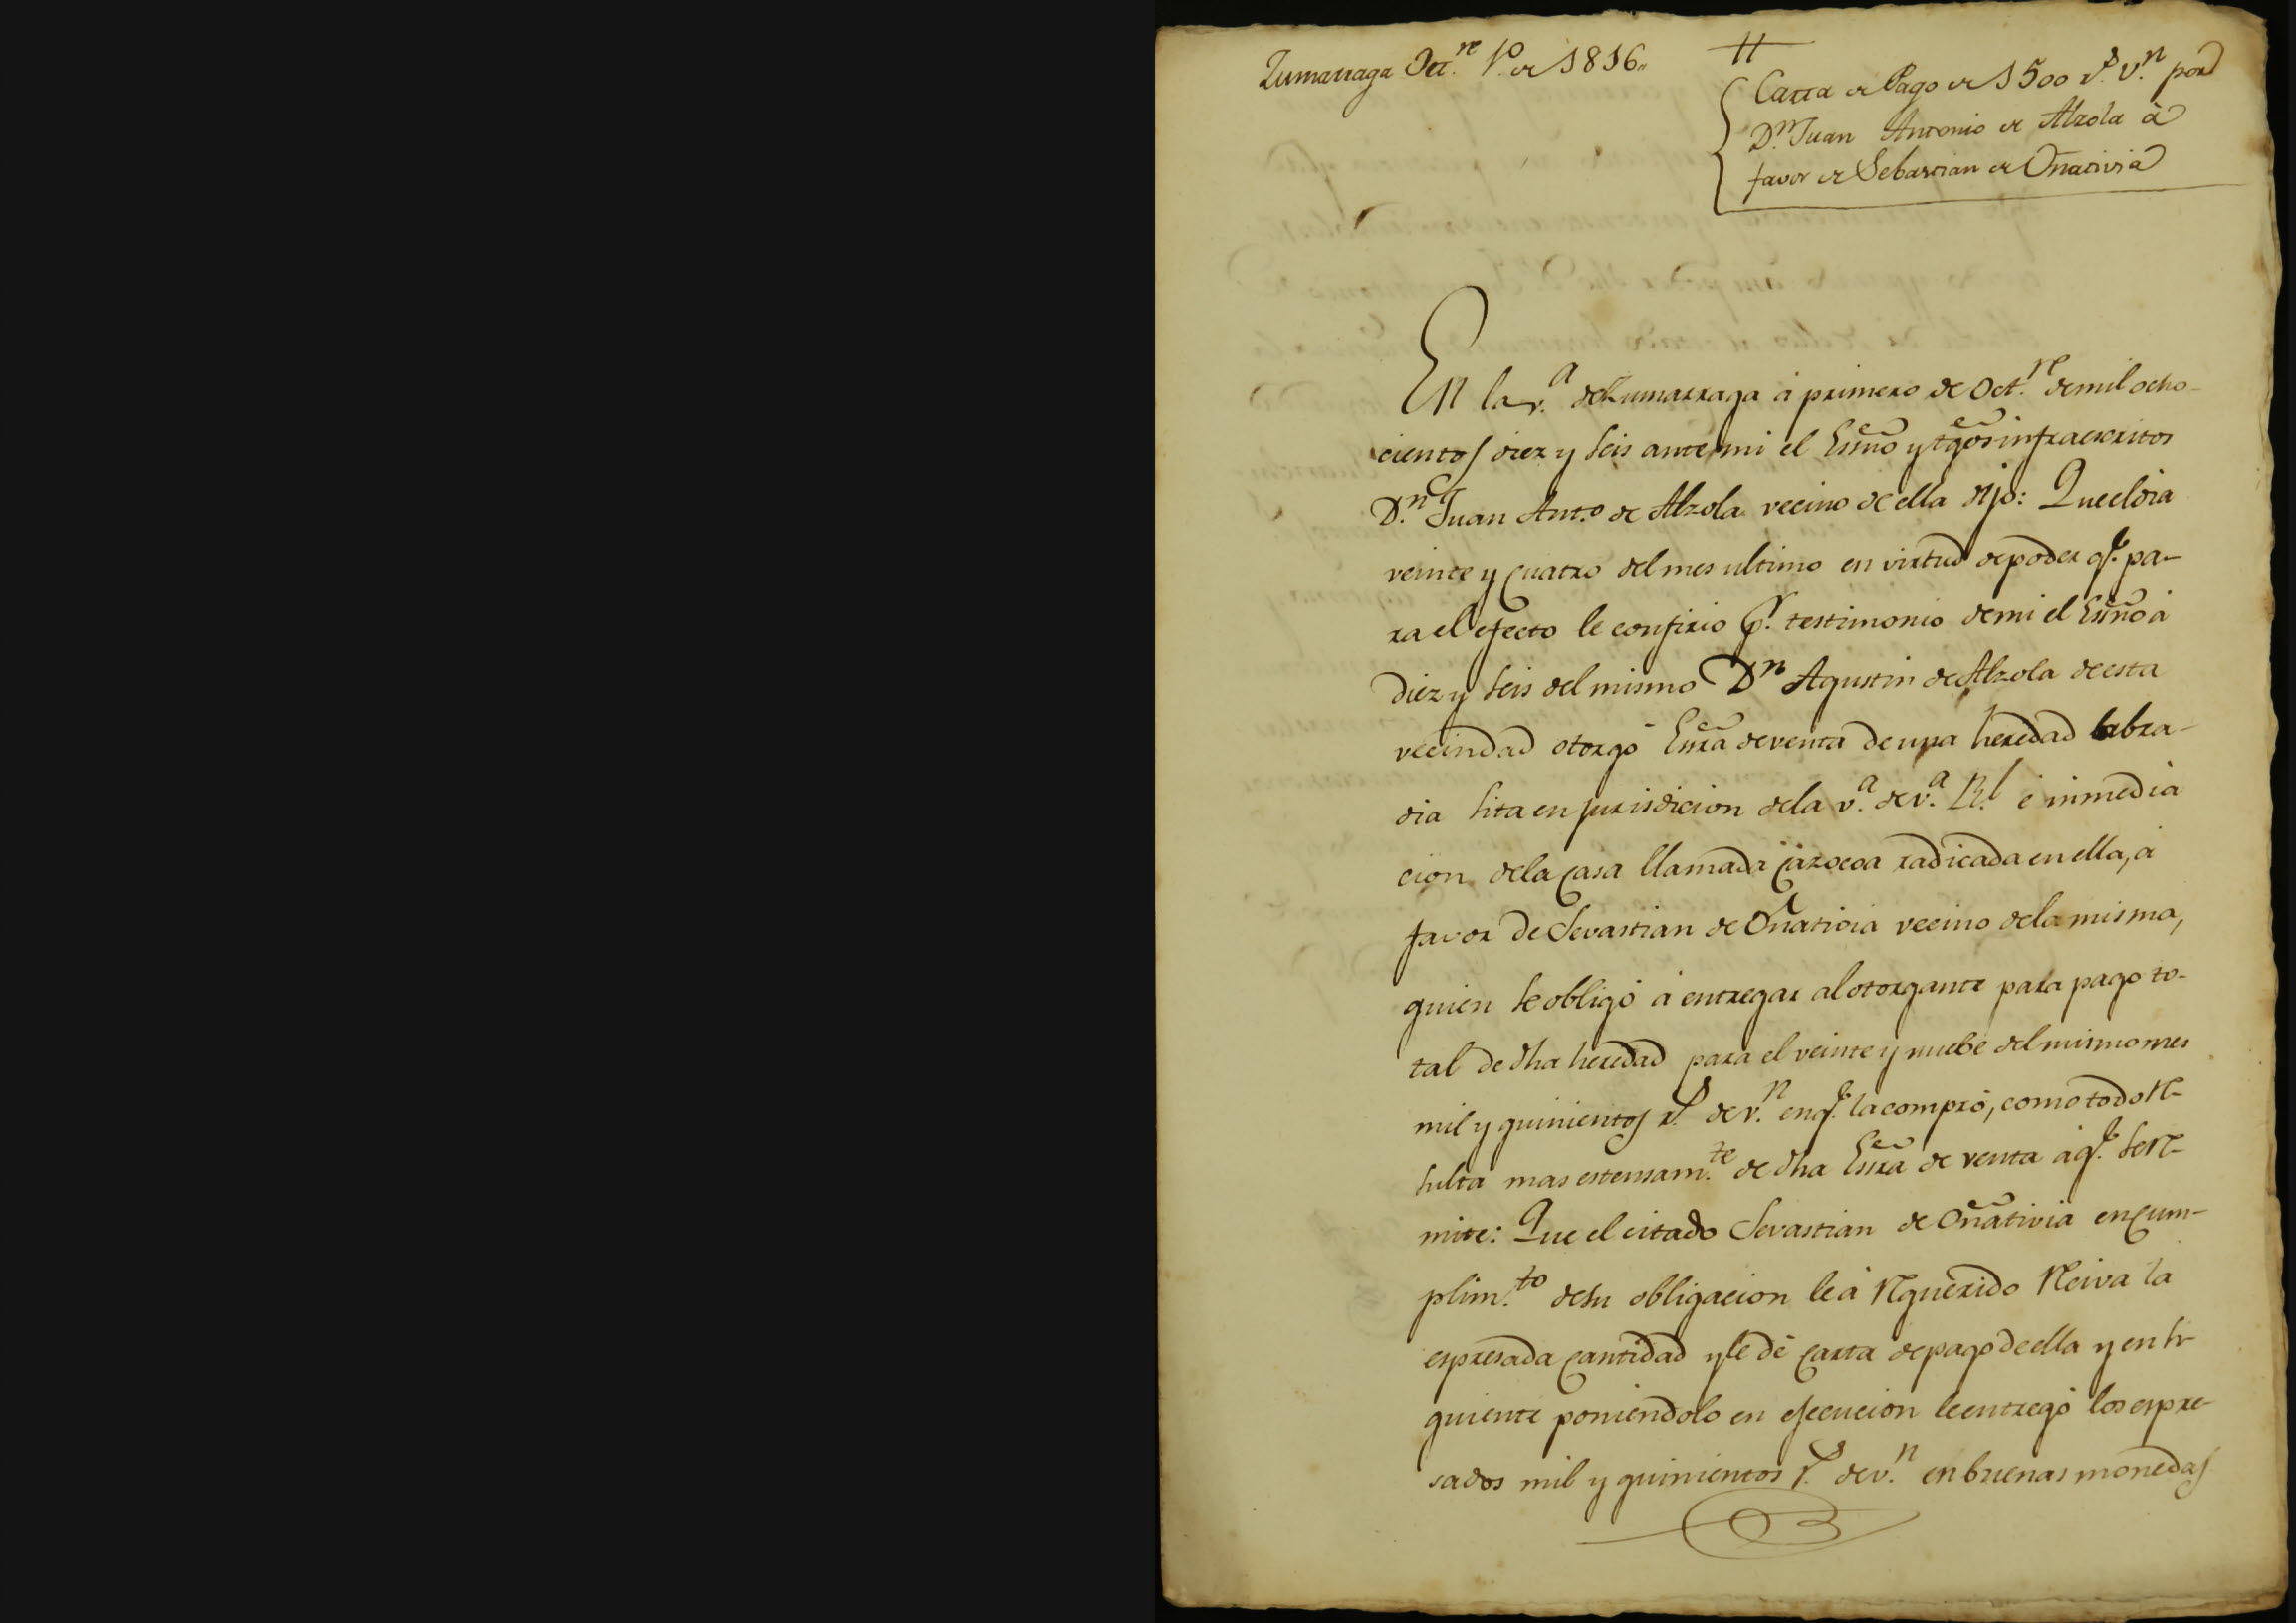 Zumarraga Oct.re 1.o de 1816.
Carta de Pago de 1500 r.s v.n por
D.n Juan Antonio de Alzola à
favor de Sebastian de Oñativia
En la v.a de Zumarraga à primero de Oct.re de mil ocho-
cientos diez y seis ante mi el Essno y tgos infraescritos
D.n Juan Ant.o de Alzola vecino de ella dijo: Que el dia
veinte y cuatro del mes ultimo en virtud de poder q.e pa-
ra el efecto le confirio p.r testimonio de mi el Essno à
diez y seis del mismo D.n Agustin de Alzola de esta
vecindad otorgó Essra de venta de una heredad labra-
dia sita en jurisdicion de la v.a de v.a R.l è inmedia
cion de la casa llamada radicada en ella, à
favor de Sevastian de Oñativia vecino de la misma,
quien se obligó à entregar al otorgante para pago to-
tal de dha heredad para el veinte y nuebe del mismo mes
mil y quinientos r.s de v.n en q.e la compró, como todo re-
sulta mas estensam.te de dha Essra de venta à q.e se re-
mite: Que el citado Sevastian de Oñativia en cum-
plim.to de su obligacion le à requerido reciva la
espresada cantidad y le dé carta de pago de ella y en si-
guiente poniendolo en ejecucion le entregó los espre-
sados mil y quinientos r.s de v.n en buenas monedas